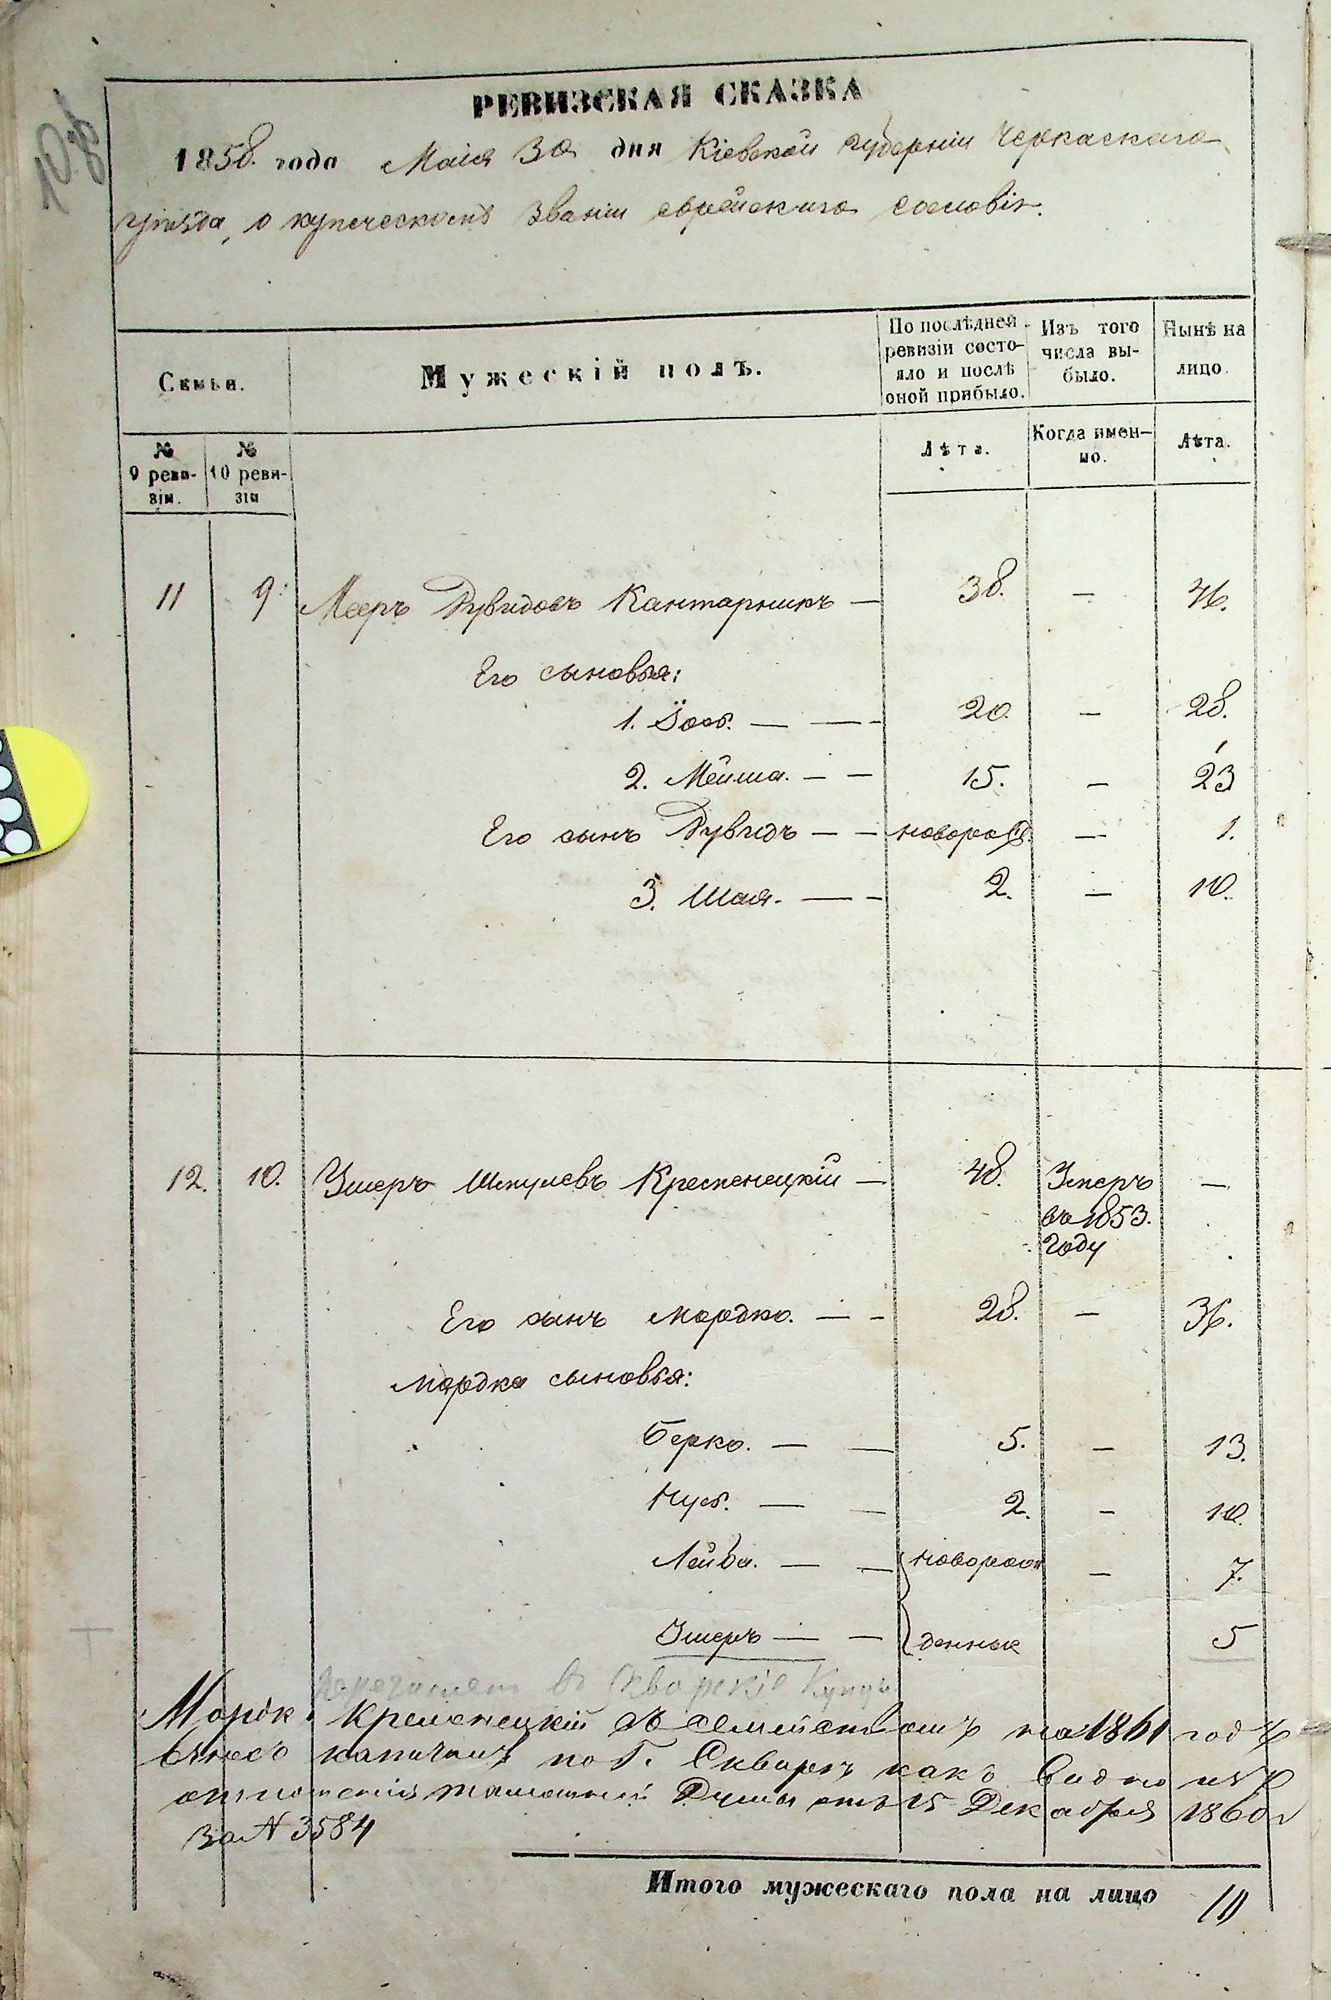 РЕВИЗСКАЯ СКАЗКА
1858. года Маія 30 дня Кіевской губерніи Черкаскаго
уѣзда, о купеческомъ званіи еврейскаго сословія.
Семьи.
Мужескій полъ.
По послѣдней ревизіи состояло и послѣ оной прибыло.
Изъ того числа выбыло.
Нынѣ на лицо.
№ 9 ревизіи.
№ 10 ревизіи
Лѣта.
Когда именно.
Лѣта.
11 9. Мееръ Дувидовъ Кантарникъ — 38. — 46.
Его сыновья:
1. Іось. — — 20. — 28.
2. Мейша. — — 15. — 23
Его сынъ Дувидъ — — новорожд. — 1.
3. Шая. — — 2. — 10.
12. 10. Ушеръ Шмулевъ Кременецкій — 48. Умеръ —
въ 1853.
году
Его сынъ Мордко. — — 28. — 36.
Мордка сыновья:
Берко. — — 5. — 13.
Нусь. — — 2. — 10.
Лейба. — — новорож — 7.
Ушеръ — — денные 5
перечисленъ въ Сквирскіе Купцы
Мордк. Кременецкій съ семействомъ на 1861 годъ
внесъ капиталъ по Г. Сквирѣ какъ видно изъ
отношенія тамошней Думы отъ 15 Декабря 1860 г
за № 3584
Итого мужескаго пола на лицо 10